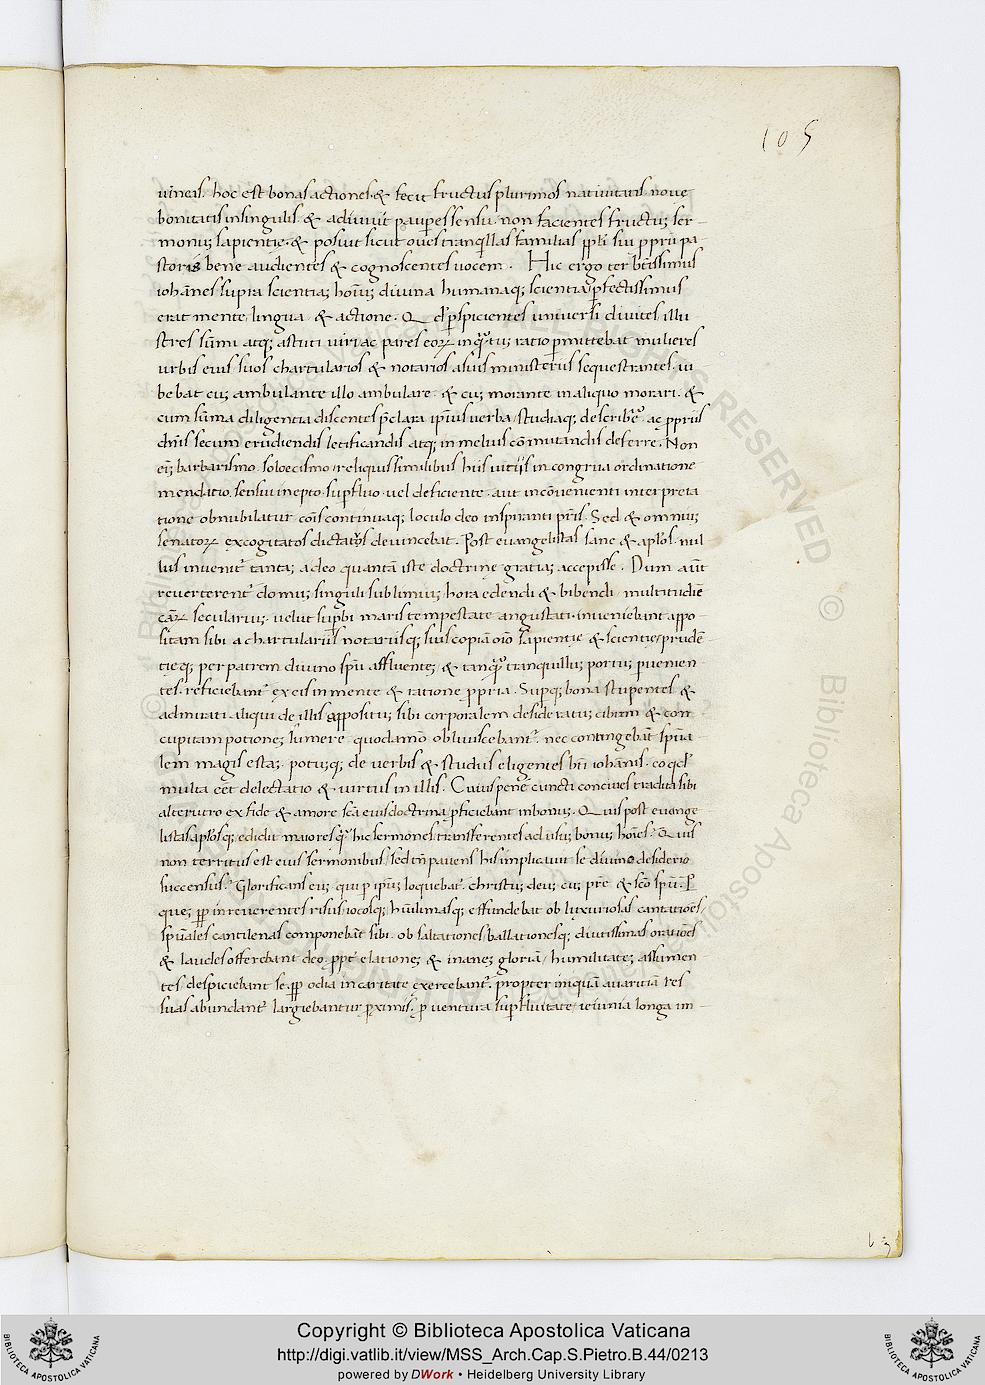 105
uineas. hoc est bonas actiones. & fecit fructus plurimos natiuitatis. noue
bonitatis in singulis. & adiuuit pauperes sensu. non facientes fructus ser-
monum sapientie. & posuit sicut oues tranqllas familias
storis bene audientes & cognoscentes uocem. Hic ergo ter btissimus
iohānes supra scientiaꝫ diuina humanaq; scientia pfectissimus
erat mente, lingua, & actione. pspicientes uniuersi diuites, illu
stres sūmi atq; astuti uiri ac pares ratio pmittebat mulieres
urbis eius suos chartularios & notarios a suis ministeriis sequestrantes. iu
bebat cuꝫ ambulante illo ambulare. & cuꝫ morante in aliquo morari. &
cum sūma diligentia discentes pclara ipius uerba, studiaq; ac ppriis
secum erudiendis letificandis atq; in melius cōmutandis deferre. Non
barbarismo. soloecismo, reliquis similibus his uitijs in congrua ordinatione
mendatio. sensu inepto. supfluo. uel deficiente. aut incōuenienti interpreta
tione obnubilatur continuaq; loculo deo inspiranti Sed & omniuꝫ
senatoꝝ excogitatos deuincebat. Post euangelistas sane & aplos. nul
lus inuenit tantaꝫ a deo quantā iste doctrine gratiaꝫ accepisse. Dum aūt
reuerterent domuꝫ singuli sublimiuꝫ hora edendi & bibendi, multitudiē
secularium. uelut supbi maris tempestate angustati. inueniebant appo-
sitam sibi a chartulariis notariisq; suis copiā sapientie & scientie, prudē-
tieq; per patrem diuino spu affluenteꝫ & tanq tranquilluꝫ portuꝫ puenien-
tes. reficiebant ex eis in mente & ratione ppria. Supq; bona stupentes &
admirati aliqui de illis sibi corporalem desideratuꝫ cibum & con
cupitam potioneꝫ sumere quodamō obliuiscebant. nec contingebat
lem magis escaꝫ. potuꝫq; de uerbis & studiis eligentes iohānis.
multa eēt delectatio & uirtus in illis. Cuius pene cuncti conciues tradita sibi
alterutro ex fide & amore eius doctrina pficiebant in bonuꝫ. Quis post euange-
listas aplosq; edidit maiores hic sermones transferentes ad usuꝫ bonuꝫ Quis
non territus est eius sermonibus, sed pauens his implicauit se diuino desiderio
succensus? Glorificans eum, qui p ipum loquebat. christus deus cum pre & sco spu.
ques irreuerentes risus iocosq; effundebat ob luxuriosas cantationes,
spuales cantilenas componebat sibi. ob saltationes, ballationesq; diutissimas orationes
& laudes offerebant deo. ppt elationeꝫ & inaneꝫ gloria, humilitateꝫ assumen-
tes despiciebant se. odia in caritate exercebant. propter auaritia res
suas abundant largiebantur pximis. p uentura supfluitate, ieiunia longa in-
Copyright © Biblioteca Apostolica Vaticana
http://digi.vatlib.it/view/MSS_Arch.Cap.S.Pietro.B.44/0213
powered by DWork • Heidelberg University Library